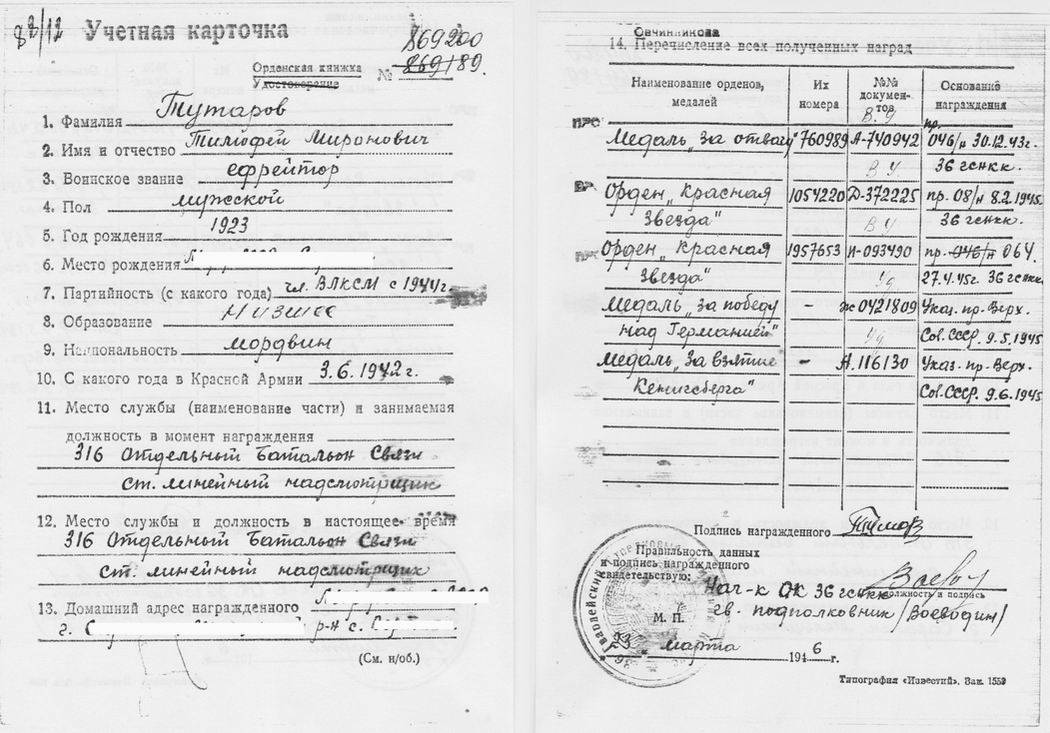 82/12 Учетная карточка
869200
Орденская книжка
Удостоверение № 869189.
1. Фамилия Тутаров
2. Имя и отчество Тимофей Миронович
3. Воинское звание ефрейтор
4. Пол мужской
5. Год рождения 1923
6. Место рождения
7. Партийность (с какого года) чл. ВЛКСМ с 1944г.
8. Образование низшее
9. Национальность мордвин
10. С какого года в Красной Армии 3.6.1942г.
11. Место службы (наименование части) и занимаемая
должность в момент награждения
316 Отдельный Батальон Связи
ст. линейный надсмотрщик
12. Место службы и должность в настоящее время
316 Отдельный Батальон Связи
ст. линейный надсмотрщик
13. Домашний адрес награжденного
г. р-н с.
(См. н/об.)
Овчинникова
14. Перечисление всех полученных наград
Наименование орденов, медалей
Их номера
№№ документов
Основание награждения
Медаль „За отвагу" 760989 А-740942 пр. 046/н 30.12.43г.
ВУ 36 гснкк.
Орден „Красная 1054220 Д-372225 пр. 08/н 8.2.1945
Звезда" ВУ 36 гснкк.
Орден „Красная 1957653 И-093490 пр. 046/н 064.
Звезда" Уд 27.4.45г. 36 гснкк
Медаль „За победу - ж 0421809 Указ. пр. Верх.
над Германией" Уд Сов. СССР. 9.5.1945
Медаль „За взятие - А.116130 Указ. пр. Верх.
Кенигсберга" Сов. СССР. 9.6.1945
Подпись награжденного
Правильность данных
и подпись награжденного
свидетельствую:
Нач-к ОК 36 гснкк
должность и подпись
гв. подполковник /Воеводин/
М. П.
23 марта 1946 г.
Типография «Известий». Зак. 1552